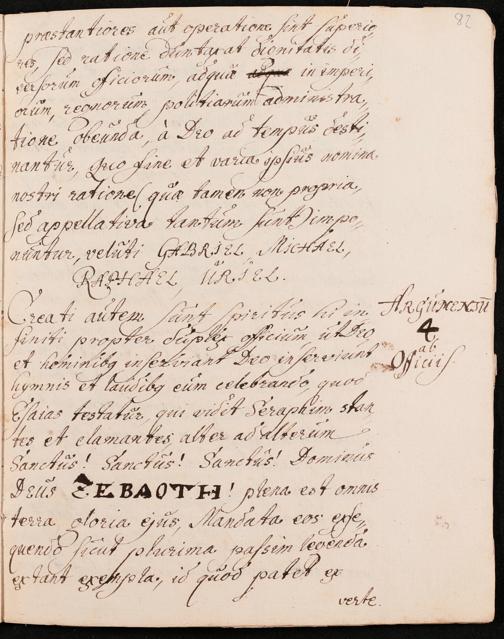 82
præstantiores aut operatione sint superio,
res, sed ratione duntaxat dignitatis di,
versorum officiorum, ad quæ in imperi,
orum, regnorum, politiarum administra,,
tione obeunda, à Deo ad tempus desti,
nantur, quo fine et varia ipsius nomina
nostri ratione (quæ tamen non propria,
sed appellativa tantum sunt) impo,
nuntur, veluti GABRIEL, MICHAEL,
RAPHAEL URIEL.
Creati autem sunt spiritus hi in
finiti propter duplex officium ut Deo
et hominibq inserviant Deo inserviunt
hymnis et laudibq eum celebrando, quod
Esaias testatur, qui vidit Seraphim stan
tes et clamantes alter ad alterum
Sanctus! Sanctus! Sanctus! Dominus
Deus ZEBAOTH! plena est omnis
terra gloria ejus, Mandata eos exse,
quendo sicut plurima passim legenda
extant exempla, id quod patet ex
verte.
ARGUMENTU
4
ab
Officiis